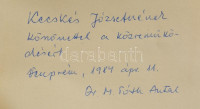 Kecskés Józsefnének
köszönettel a közremükö-
désért
Veszprém, 1989 ápr. 11.
Dr M Tóth Antal